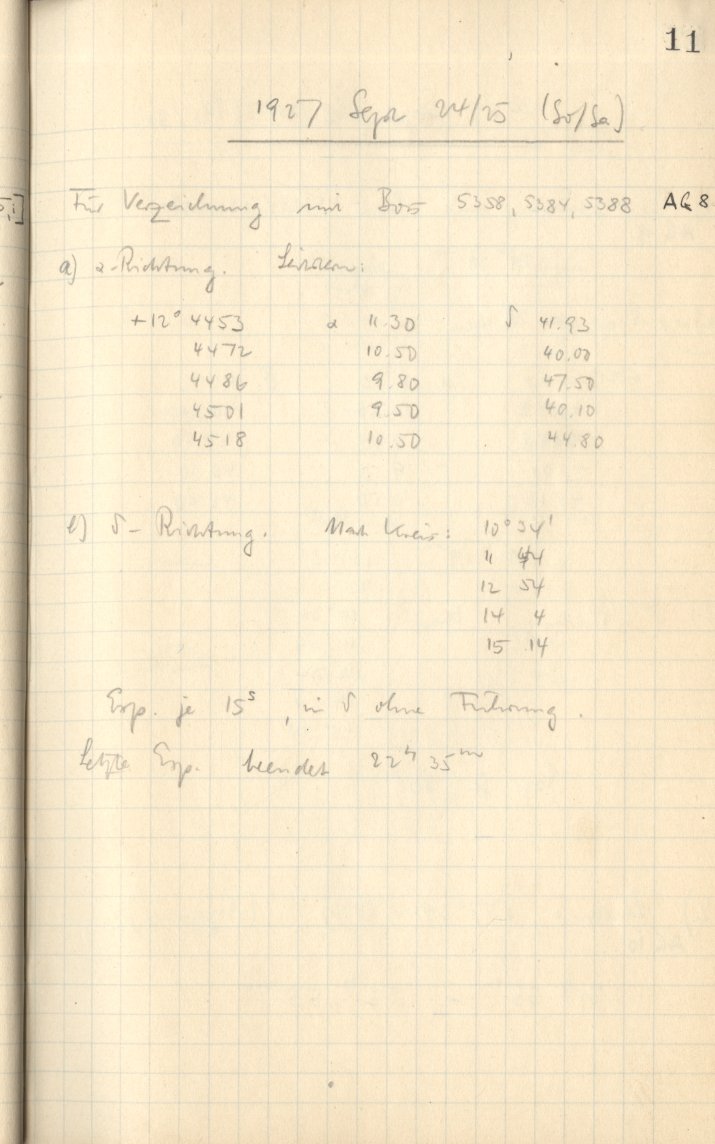 11
1927 Sept 24/25 (So/Sa)
Für Verzeichnung mit Boss 5358, 5384, 5388 AG 8
a) α-Richtung.
+12° 4453 α 11.30 δ 41.93
4472 10.50 40.00
4486 9.80 47.50
4501 9.50 40.10
4518 10.50 44.80
b) δ-Richtung. Nach Kreis: 10° 34'
11 44
12 54
14 4
15 14
Exp. je 15ˢ, in δ ohne Führung.
Letzte Exp. beendet 22ʰ 35ᵐ